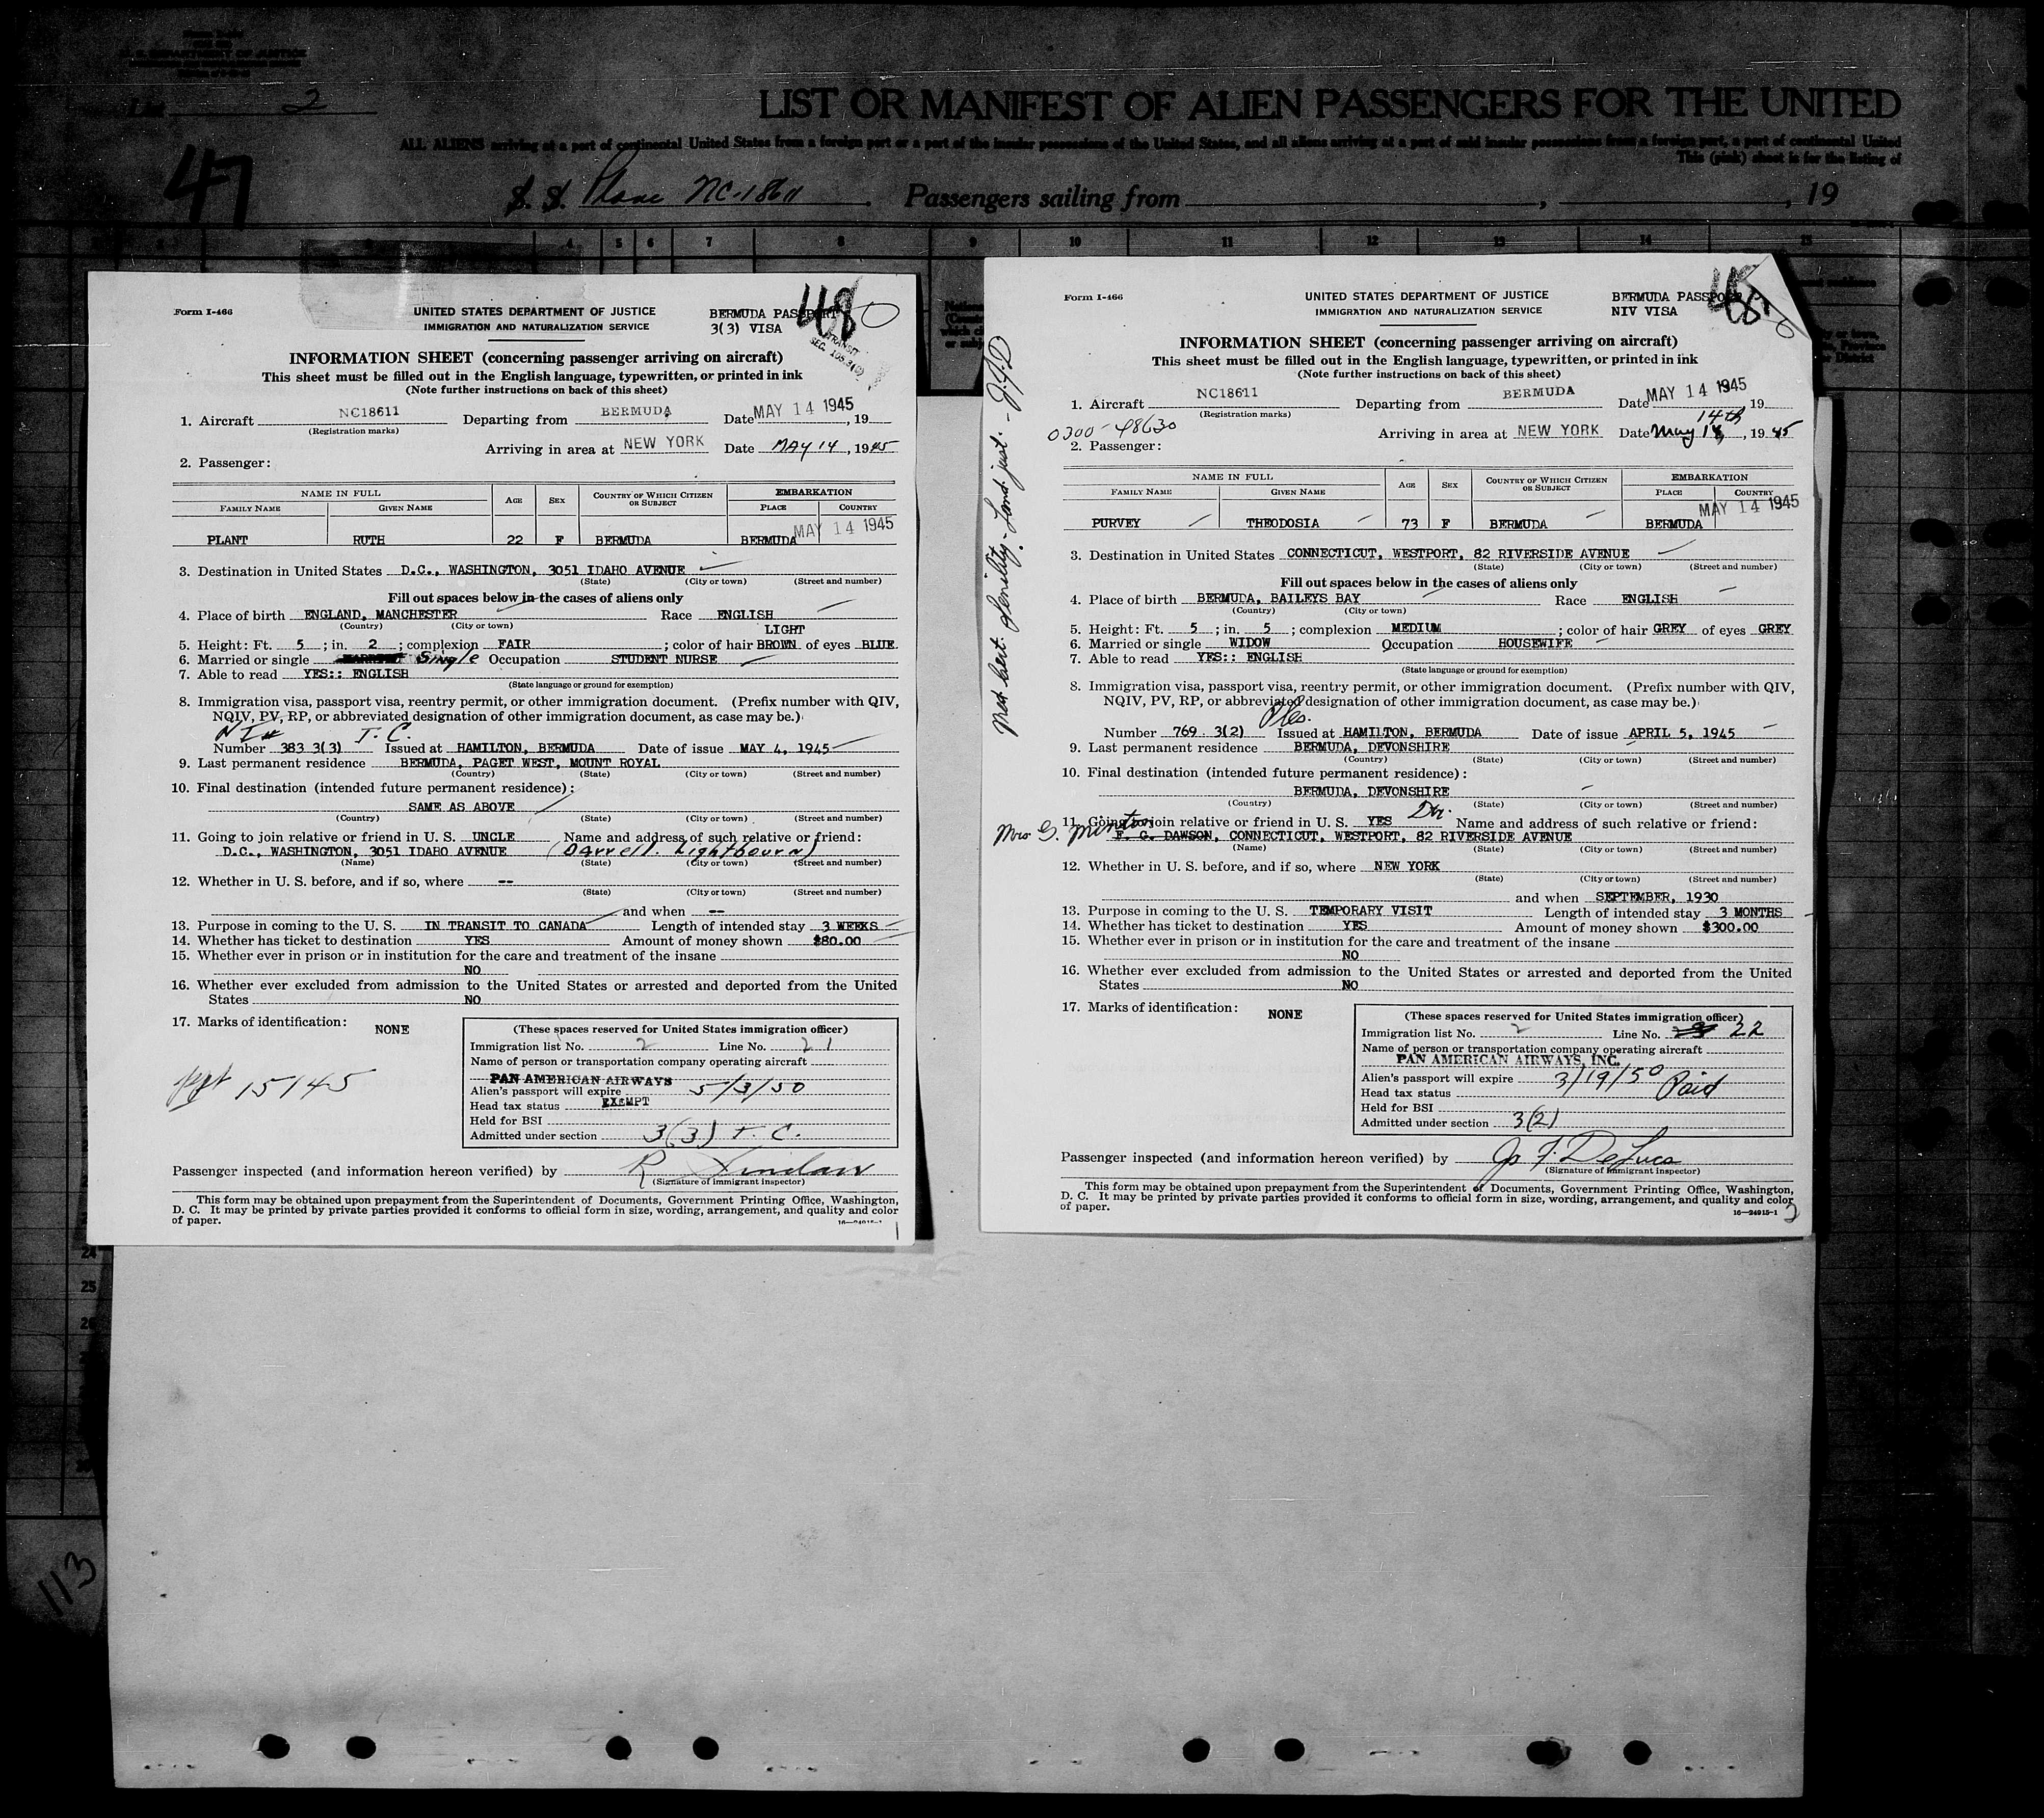 List 2
LIST OR MANIFEST OF ALIEN PASSENGERS FOR THE UNITED
ALL ALIENS arriving at a port of continental United States from a foreign port or a port of the insular possessions of the United States, and all aliens arriving at a port of said insular possessions from a foreign port, a port of continental United
This (pink) sheet is for the listing of
47
S. S. Plane NC-18611 . Passengers sailing from , , 19
3 4 5 6 7 8 9 10 11 12 13 14 15
Form I-466
UNITED STATES DEPARTMENT OF JUSTICE
IMMIGRATION AND NATURALIZATION SERVICE
BERMUDA PASSPORT
3(3) VISA
48
TRANSIT
INFORMATION SHEET (concerning passenger arriving on aircraft)
This sheet must be filled out in the English language, typewritten, or printed in ink
(Note further instructions on back of this sheet)
1. Aircraft NC18611 Departing from BERMUDA Date MAY 14 1945, 19
(Registration marks)
Arriving in area at NEW YORK Date MAY 14, 1945
2. Passenger:
NAME IN FULL AGE SEX COUNTRY OF WHICH CITIZEN OR SUBJECT EMBARKATION
FAMILY NAME GIVEN NAME PLACE COUNTRY
MAY 14 1945
PLANT RUTH 22 F BERMUDA BERMUDA
3. Destination in United States D.C., WASHINGTON, 3051 IDAHO AVENUE
(State) (City or town) (Street and number)
Fill out spaces below in the cases of aliens only
4. Place of birth ENGLAND, MANCHESTER Race ENGLISH
(Country) (City or town)
LIGHT
5. Height: Ft. 5 ; in. 2 ; complexion FAIR ; color of hair BROWN of eyes BLUE
6. Married or single Single Occupation STUDENT NURSE
7. Able to read YES:: ENGLISH
(State language or ground for exemption)
8. Immigration visa, passport visa, reentry permit, or other immigration document. (Prefix number with QIV,
NQIV, PV, RP, or abbreviated designation of other immigration document, as case may be.)
T. C.
Number 383 3(3) Issued at HAMILTON, BERMUDA Date of issue MAY 4, 1945
9. Last permanent residence BERMUDA, PAGET WEST, MOUNT ROYAL
(Country) (State) (City or town) (Street and number)
10. Final destination (intended future permanent residence):
SAME AS ABOVE
(Country) (State) (City or town) (Street and number)
11. Going to join relative or friend in U. S. UNCLE Name and address of such relative or friend:
D.C., WASHINGTON, 3051 IDAHO AVENUE (Darrell Lightbourn)
(Name) (State) (City or town) (Street and number)
12. Whether in U. S. before, and if so, where --
(State) (City or town) (Street and number)
and when --
13. Purpose in coming to the U. S. IN TRANSIT TO CANADA Length of intended stay 3 WEEKS
14. Whether has ticket to destination YES Amount of money shown $80.00
15. Whether ever in prison or in institution for the care and treatment of the insane
NO
16. Whether ever excluded from admission to the United States or arrested and deported from the United
States NO
17. Marks of identification: NONE
(These spaces reserved for United States immigration officer)
Immigration list No. 2 Line No. 21
Name of person or transportation company operating aircraft
PAN AMERICAN AIRWAYS
Alien's passport will expire 5/3/50
Head tax status EXEMPT
Held for BSI
Admitted under section 3(3) T. C.
ppt 15145
Passenger inspected (and information hereon verified) by
(Signature of immigrant inspector)
This form may be obtained upon prepayment from the Superintendent of Documents, Government Printing Office, Washington,
D. C. It may be printed by private parties provided it conforms to official form in size, wording, arrangement, and quality and color
of paper.
16—24915-1
1
Form I-466
UNITED STATES DEPARTMENT OF JUSTICE
IMMIGRATION AND NATURALIZATION SERVICE
BERMUDA PASSPORT
NIV VISA
48
INFORMATION SHEET (concerning passenger arriving on aircraft)
This sheet must be filled out in the English language, typewritten, or printed in ink
(Note further instructions on back of this sheet)
1. Aircraft NC18611 Departing from BERMUDA Date MAY 14 1945 19
(Registration marks)
14th
0300-48630 Arriving in area at NEW YORK Date May 14, 1945
2. Passenger:
NAME IN FULL AGE SEX COUNTRY OF WHICH CITIZEN OR SUBJECT EMBARKATION
FAMILY NAME GIVEN NAME PLACE COUNTRY
MAY 14 1945
PURVEY THEODOSIA 73 F BERMUDA BERMUDA
3. Destination in United States CONNECTICUT, WESTPORT, 82 RIVERSIDE AVENUE
(State) (City or town) (Street and number)
Fill out spaces below in the cases of aliens only
4. Place of birth BERMUDA, BAILEYS BAY Race ENGLISH
(Country) (City or town)
5. Height: Ft. 5 ; in. 5 ; complexion MEDIUM ; color of hair GREY of eyes GREY
6. Married or single WIDOW Occupation HOUSEWIFE
7. Able to read YES:: ENGLISH
(State language or ground for exemption)
8. Immigration visa, passport visa, reentry permit, or other immigration document. (Prefix number with QIV,
NQIV, PV, RP, or abbreviated designation of other immigration document, as case may be.)
Number 769 3(2) Issued at HAMILTON, BERMUDA Date of issue APRIL 5, 1945
9. Last permanent residence BERMUDA, DEVONSHIRE
(Country) (State) (City or town) (Street and number)
10. Final destination (intended future permanent residence):
BERMUDA, DEVONSHIRE
(Country) (State) (City or town) (Street and number)
11. Going to join relative or friend in U. S. YES Name and address of such relative or friend:
Mrs G. F. G. DAWSON, CONNECTICUT, WESTPORT, 82 RIVERSIDE AVENUE
(Name) (State) (City or town) (Street and number)
12. Whether in U. S. before, and if so, where NEW YORK
(State) (City or town) (Street and number)
and when SEPTEMBER, 1930
13. Purpose in coming to the U. S. TEMPORARY VISIT Length of intended stay 3 MONTHS
14. Whether has ticket to destination YES Amount of money shown $300.00
15. Whether ever in prison or in institution for the care and treatment of the insane
NO
16. Whether ever excluded from admission to the United States or arrested and deported from the United
States NO
17. Marks of identification: NONE
(These spaces reserved for United States immigration officer)
Immigration list No. 2 Line No. 22
Name of person or transportation company operating aircraft
PAN AMERICAN AIRWAYS, INC.
Alien's passport will expire 3/19/50
Head tax status Paid
Held for BSI
Admitted under section 3(2)
Passenger inspected (and information hereon verified) by J. F. DeLuca
(Signature of immigrant inspector)
This form may be obtained upon prepayment from the Superintendent of Documents, Government Printing Office, Washington,
D. C. It may be printed by private parties provided it conforms to official form in size, wording, arrangement, and quality and color
of paper.
16—24915-1
2
Med cert. Senility - J.F.D
24
25
26
113